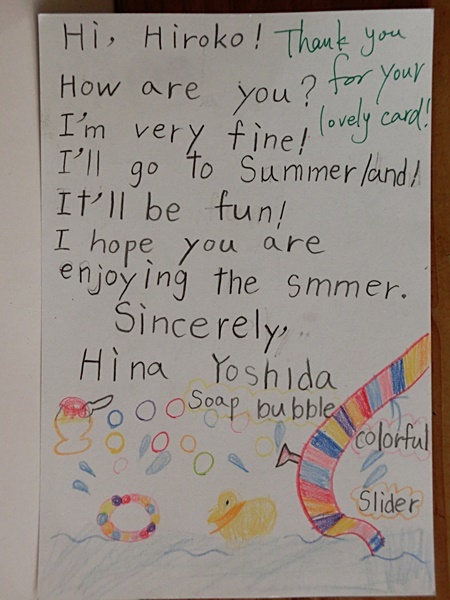 Hi, Hiroko!
Thank you
for your
lovely card!
How are you?
I'm very fine!
I'll go to Summerland!
It'll be fun!
I hope you are
enjoying the smmer.
Sincerely,
Hina Yoshida
Soap bubble
colorful
Slider